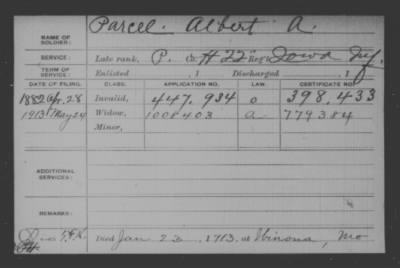 NAME OF SOLDIER: Parcel. Albert A.
SERVICE: Late rank, P. Co. H 22" Reg't Iowa Inf.
TERM OF SERVICE: Enlisted , 1 Discharged , 1
DATE OF FILING. CLASS. APPLICATION NO. LAW. CERTIFICATE NO.
1882 Apr. 28 Invalid, 447.934 o 398.433
1913 May 24 Widow, 1008403 a 779384
Minor,
ADDITIONAL SERVICES:
REMARKS:
Died Jan 23, 1913, at Winona, Mo